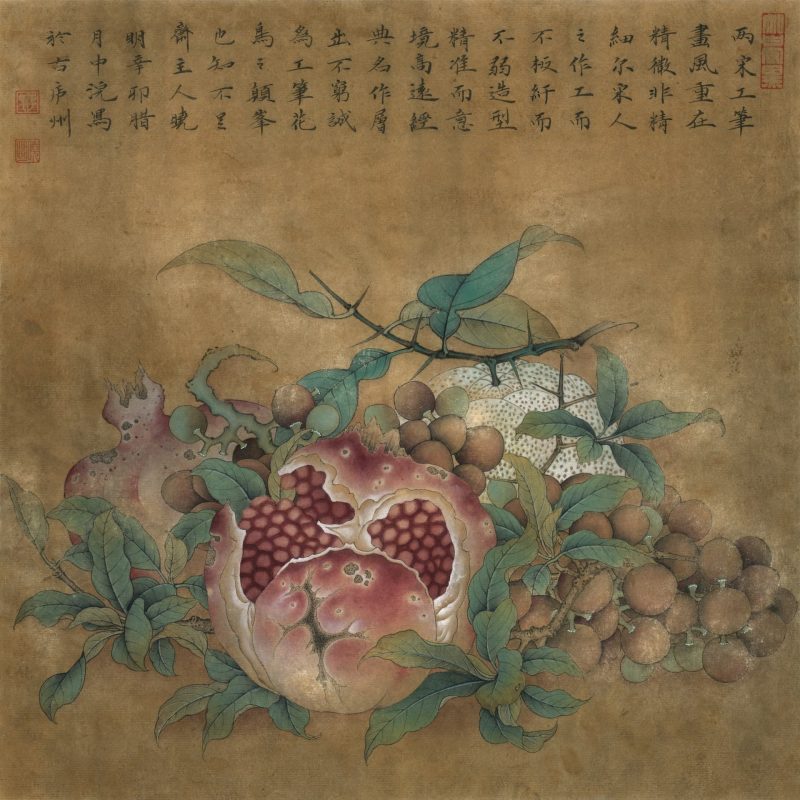 两宋工筆
畫風重在
精微非精
細尔宋人
之作工而
不板纤而
不弱造型
精准而意
境高遠經
典名作層
出不窮誠
為工筆花
鳥之顛峯
也知不足
齋主人曉
明辛卯腊
月中浣馬
於古庐州